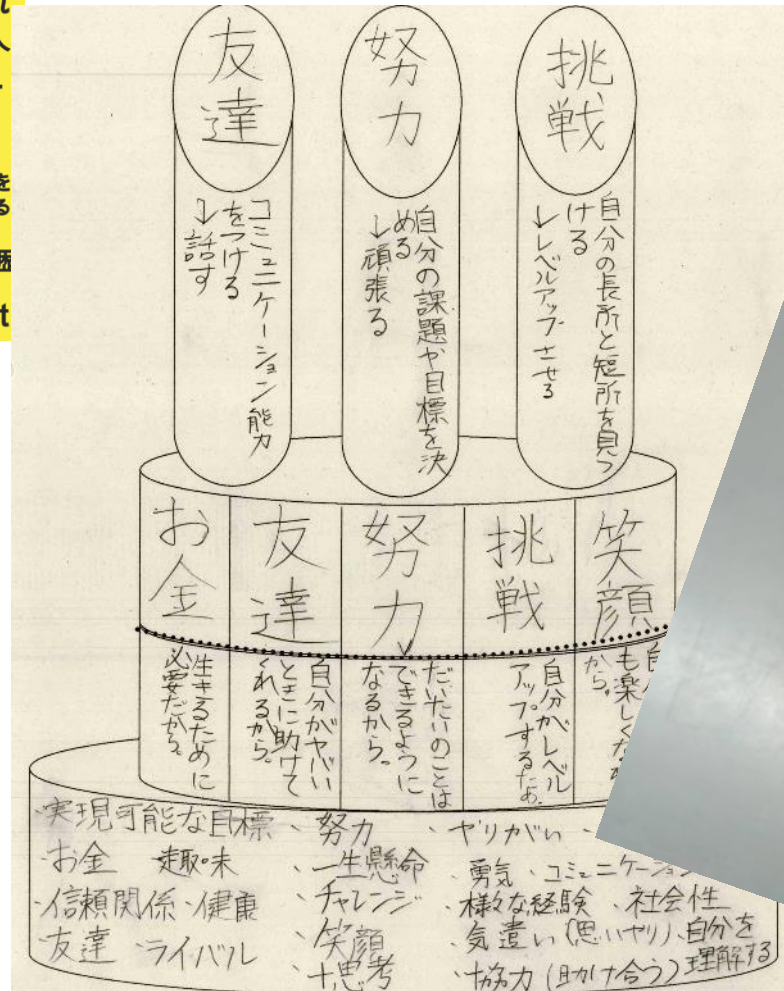 友達
努力
挑戦
コミュニケーション能力
をつける
↓話す
自分の課題や目標を決
める
↓頑張る
自分の長所と短所を見つ
ける
↓レベルアップさせる
お金
友達
努力
挑戦
笑顔
生きるために
必要だから。
自分がヤバい
ときに助けて
くれるから。
だいたいのことは
できるように
なるから。
自分がレベル
アップするため
も楽しくな
から。
・実現可能な目標
・お金 趣味
・信頼関係・健康
友達 ・ライバル
・努力
・一生懸命
・チャレンジ
・笑顔
・思考
・ヤリがい
・勇気・コミュニケーション
・様々な経験・社会性
・気遣い(思いやり)・自分を
理解する
・協力(助け合う)
を
る
t